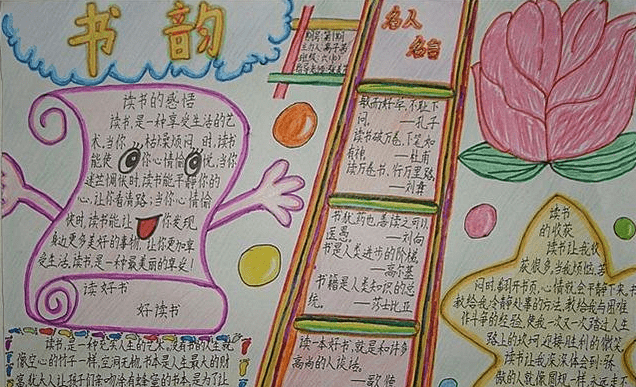 书韵
名人
名言
读书的感悟
读书,是一种享受生活的艺
术。当你枯燥烦闷时,读书
能使你心情愉悦,当你
迷茫惆怅时,读书能平静你的
心,让你看清路;当你心情愉
快时,读书能让你发现
身边更多美好的事物,让你更加享
受生活。读书,是一种最美丽的享受!
读好书
好读书
敏而好学,不耻下
问。—孔子
读书破万卷,下笔如
有神 —杜甫
读万卷书,行万里路
—刘彝
书犹药也,善读之可以
医愚。—刘向
书是人类进步的阶梯。
—高尔基
书籍是人类知识的总
统。—莎士比亚
读一本好书,就是和许多
高尚的人谈话。
—歌德
读书
的收获
读书让我收
获很多,当我烦恼、苦
闷时,翻开书页,心情就会平静下来,书
教给我冷静处事的方法,教给我与困难
作斗争的经验,使我一次又一次踏过人生
路上的坎坷,迎接胜利的微笑
读书让我深深体会到:张
像空心的竹子一样,空洞无物。书本是人生最大的财